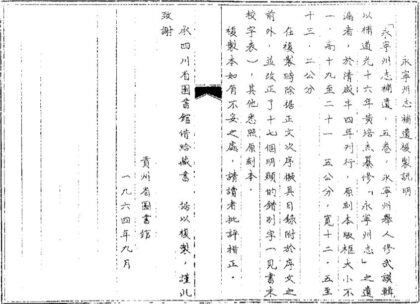 永寧州志補遺複製說明
「永寧州志補遺」五卷，永寧州舉人修武謨輯
以補道光十六年黄培杰纂修「永寧州志」之遺
漏者，於清咸丰四年刋行，原刻本版框大小不
一，高十九至二十一．五公分，寬十二．五至
十三．二公分
在複製時除据正文次序擬具目録附於序文之
前外，並改正了十七個明顯的錯别字（見書末
校字表），其他悉照原刻本。
複製本如有不妥之處，請讀者批評指正。
承四川省圖書館借給藏書，諾以複製，謹此
致謝
貴州省圖書館
一九六四年九月